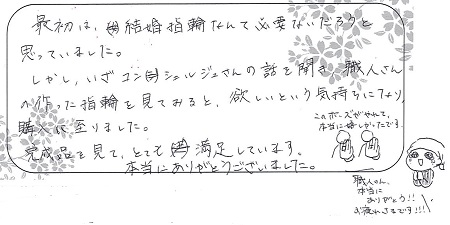 最初は、結婚指輪なんて必要ないだろうと
思っていました。
しかし、いざコンシェルジュさんの話を聞き、職人さん
の作った指輪を見てみると、欲しいという気持ちになり、
購入に至りました。
このポーズがやれて、
本当に嬉しかったです。
完成品を見て、とても満足しています。
本当にありがとうございました。
職人さん、
本当に
ありがとう!!
お疲れさまです!!!